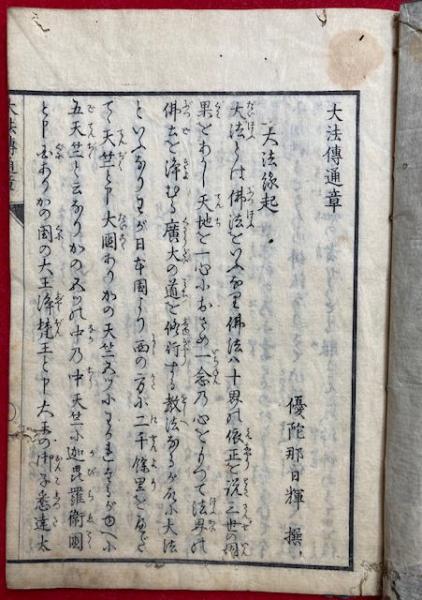 大法傳通章
優陀那日輝 撰
大法縁起
大法とは佛法をいふなり佛法ハ十界の依正を説三世の因
果をあかし天地を一心におさめ一念の心をもつて法界の
佛土を浄むる廣大の道を修行する教法なるが故に大法
といふなりわが日本国より西の方に二千餘里をへだ
てゝ天竺と申大国ありかの天竺五ツにわかれたるがゆへに
五天竺と云なりかの五ツの中乃中天竺に迦毘羅衛国
と申国ありかの国の大王浄梵王と申大王の御子悉達太
大法傳通章